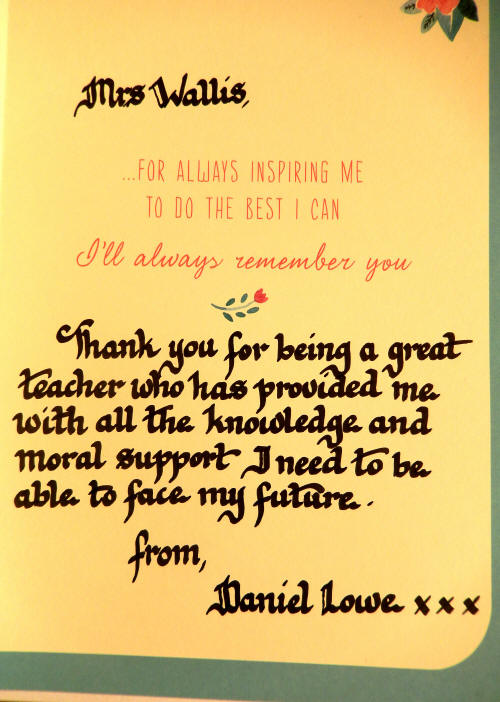 Mrs Wallis,
...FOR ALWAYS INSPIRING ME
TO DO THE BEST I CAN
I'll always remember you
Thank you for being a great
teacher who has provided me
with all the knowledge and
moral support I need to be
able to face my future.
from,
Daniel Lowe x x x